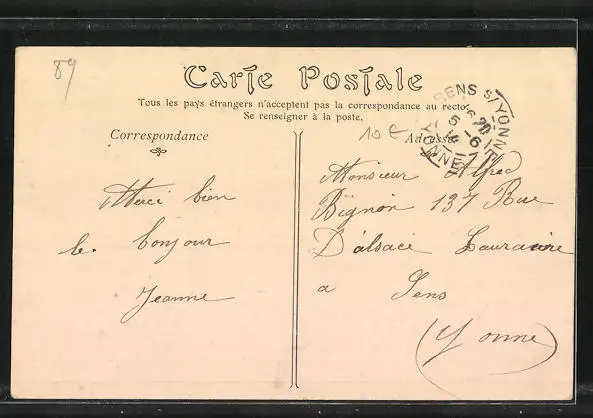 89
Carte Postale
Tous les pays étrangers n'acceptent pas la correspondance au recto
Se renseigner à la poste.
Correspondance
10 €
Adresse
SENS S/YONNE
YONNE
Merci bien
le bonjour
Jeanne
Monsieur Alfred
Bignon 137 Rue
D'alsace Lauraine
a Sens
(Yonne)